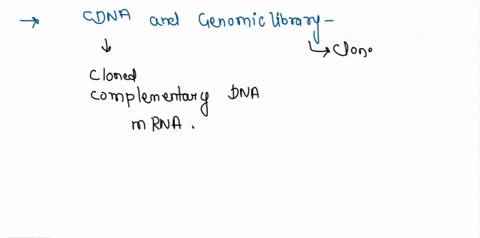 → CDNA and Genomic library -
↓ ↳ Clone
Cloned
Complementary DNA
mRNA.